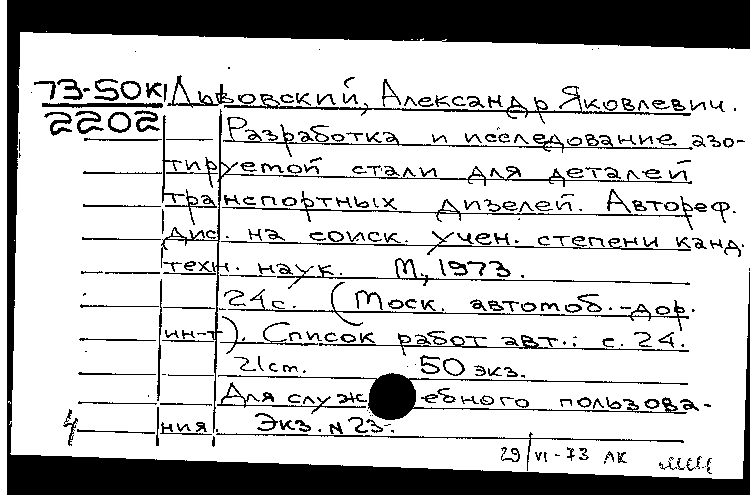 73-50к Львовский, Александр Яковлевич.
2202
Разработка и исследование азо-
тируемой стали для деталей
транспортных дизелей. Автореф.
дис. на соиск. учен. степени канд.
техн. наук. М., 1973.
24 с. (Моск. автомоб.-дор.
ин-т). Список работ авт.: с. 24.
21 cm. 50 экз.
Для служебного пользова-
ния. Экз. N 23.
29/VI-73 АК